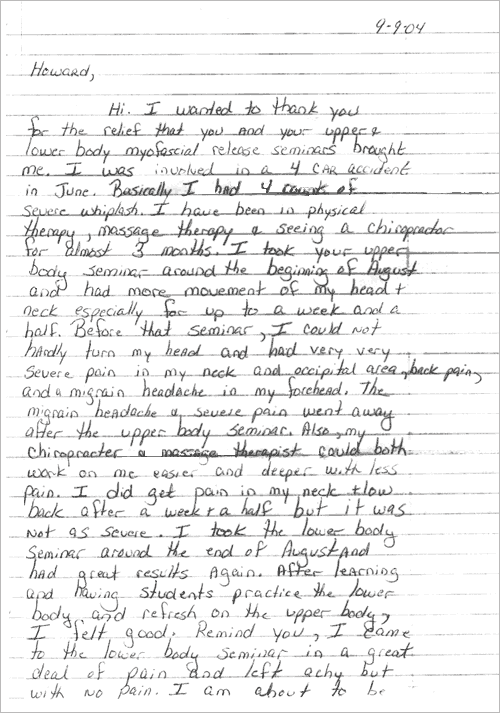 9-9-04
Howard,
Hi. I wanted to thank you
for the relief that you and your upper &
lower body myofascial release seminars brought
me. I was involved in a 4 car accident
in June. Basically I had 4 counts of
severe whiplash. I have been in physical
therapy, massage therapy & seeing a chiropractor
for almost 3 months. I took your upper
body seminar around the beginning of August
and had more movement of my head +
neck especially for up to a week and a
half. Before that seminar, I could not
hardly turn my head and had very very
severe pain in my neck and occipital area, back pain,
and a migrain headache in my forehead. The
migrain headache & severe pain went away
after the upper body seminar. Also, my
chiropracter & massage therapist could both
work on me easier and deeper with less
pain. I did get pain in my neck + low
back after a week + a half but it was
not as severe. I took the lower body
seminar around the end of August and
had great results again. After learning
and having students practice the lower
body, and refresh on the upper body,
I felt good. Remind you, I came
to the lower body seminar in a great
deal of pain and left achy but
with no pain. I am about to be